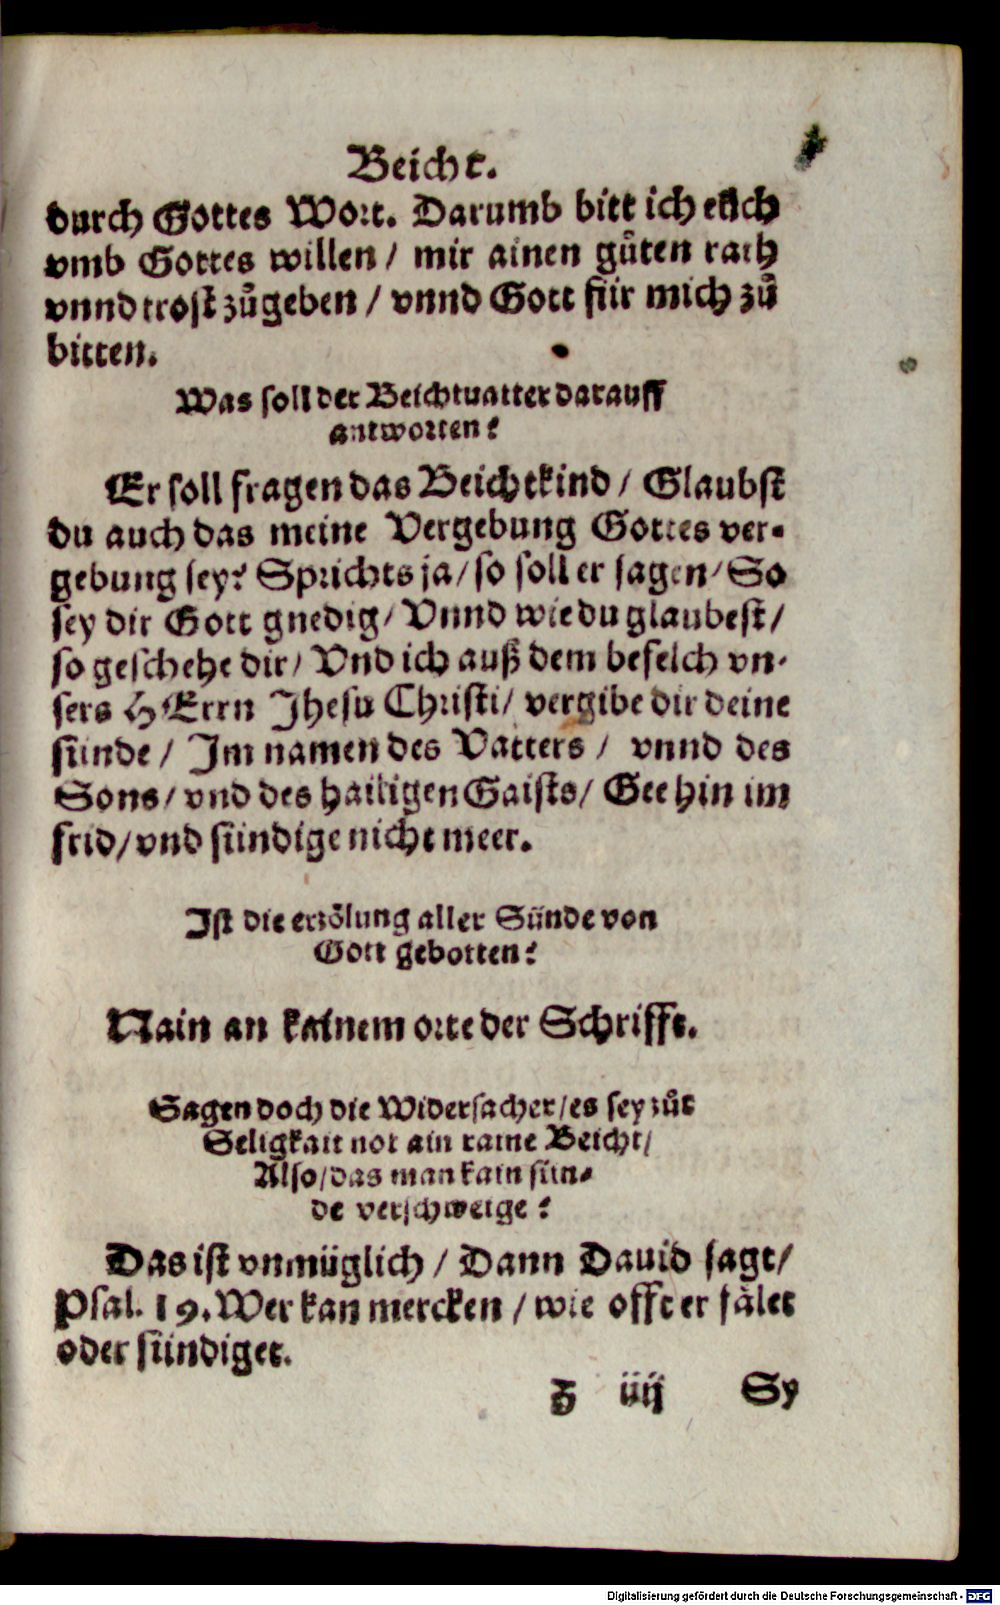 Beicht.
durch Gottes Wort. Darumb bitt ich eüch
vmb Gottes willen / mir ainen gůten rath
vnnd trost zůgeben / vnnd Gott für mich zů
bitten.
Was soll der Beichtuatter darauff
antworten?
Er soll fragen das Beichtkind / Glaubst
du auch das meine Vergebung Gottes ver-
gebung sey? Sprichts ja / so soll er sagen / So
sey dir Gott gnedig / Vnnd wie du glaubest /
so geschehe dir / Vnd ich auß dem befelch vn-
sers HErrn Jhesu Christi / vergibe dir deine
sünde / Im namen des Vatters / vnnd des
Sons / vnd des hailigen Gaists / Gee hin im
frid / vnd sündige nicht meer.
Ist die erzölung aller Sünde von
Gott gebotten?
Nain an kainem orte der Schrifft.
Sagen doch die Widersacher / es sey zůr
Seligkait not ain raine Beicht /
Also / das man kain sün-
de verschweige?
Das ist vnmüglich / Dann Dauid sagt /
Psal. 19. Wer kan mercken / wie offt er fälet
oder sündiget.
iiij Sy
Digitalisierung gefördert durch die Deutsche Forschungsgemeinschaft - DFG